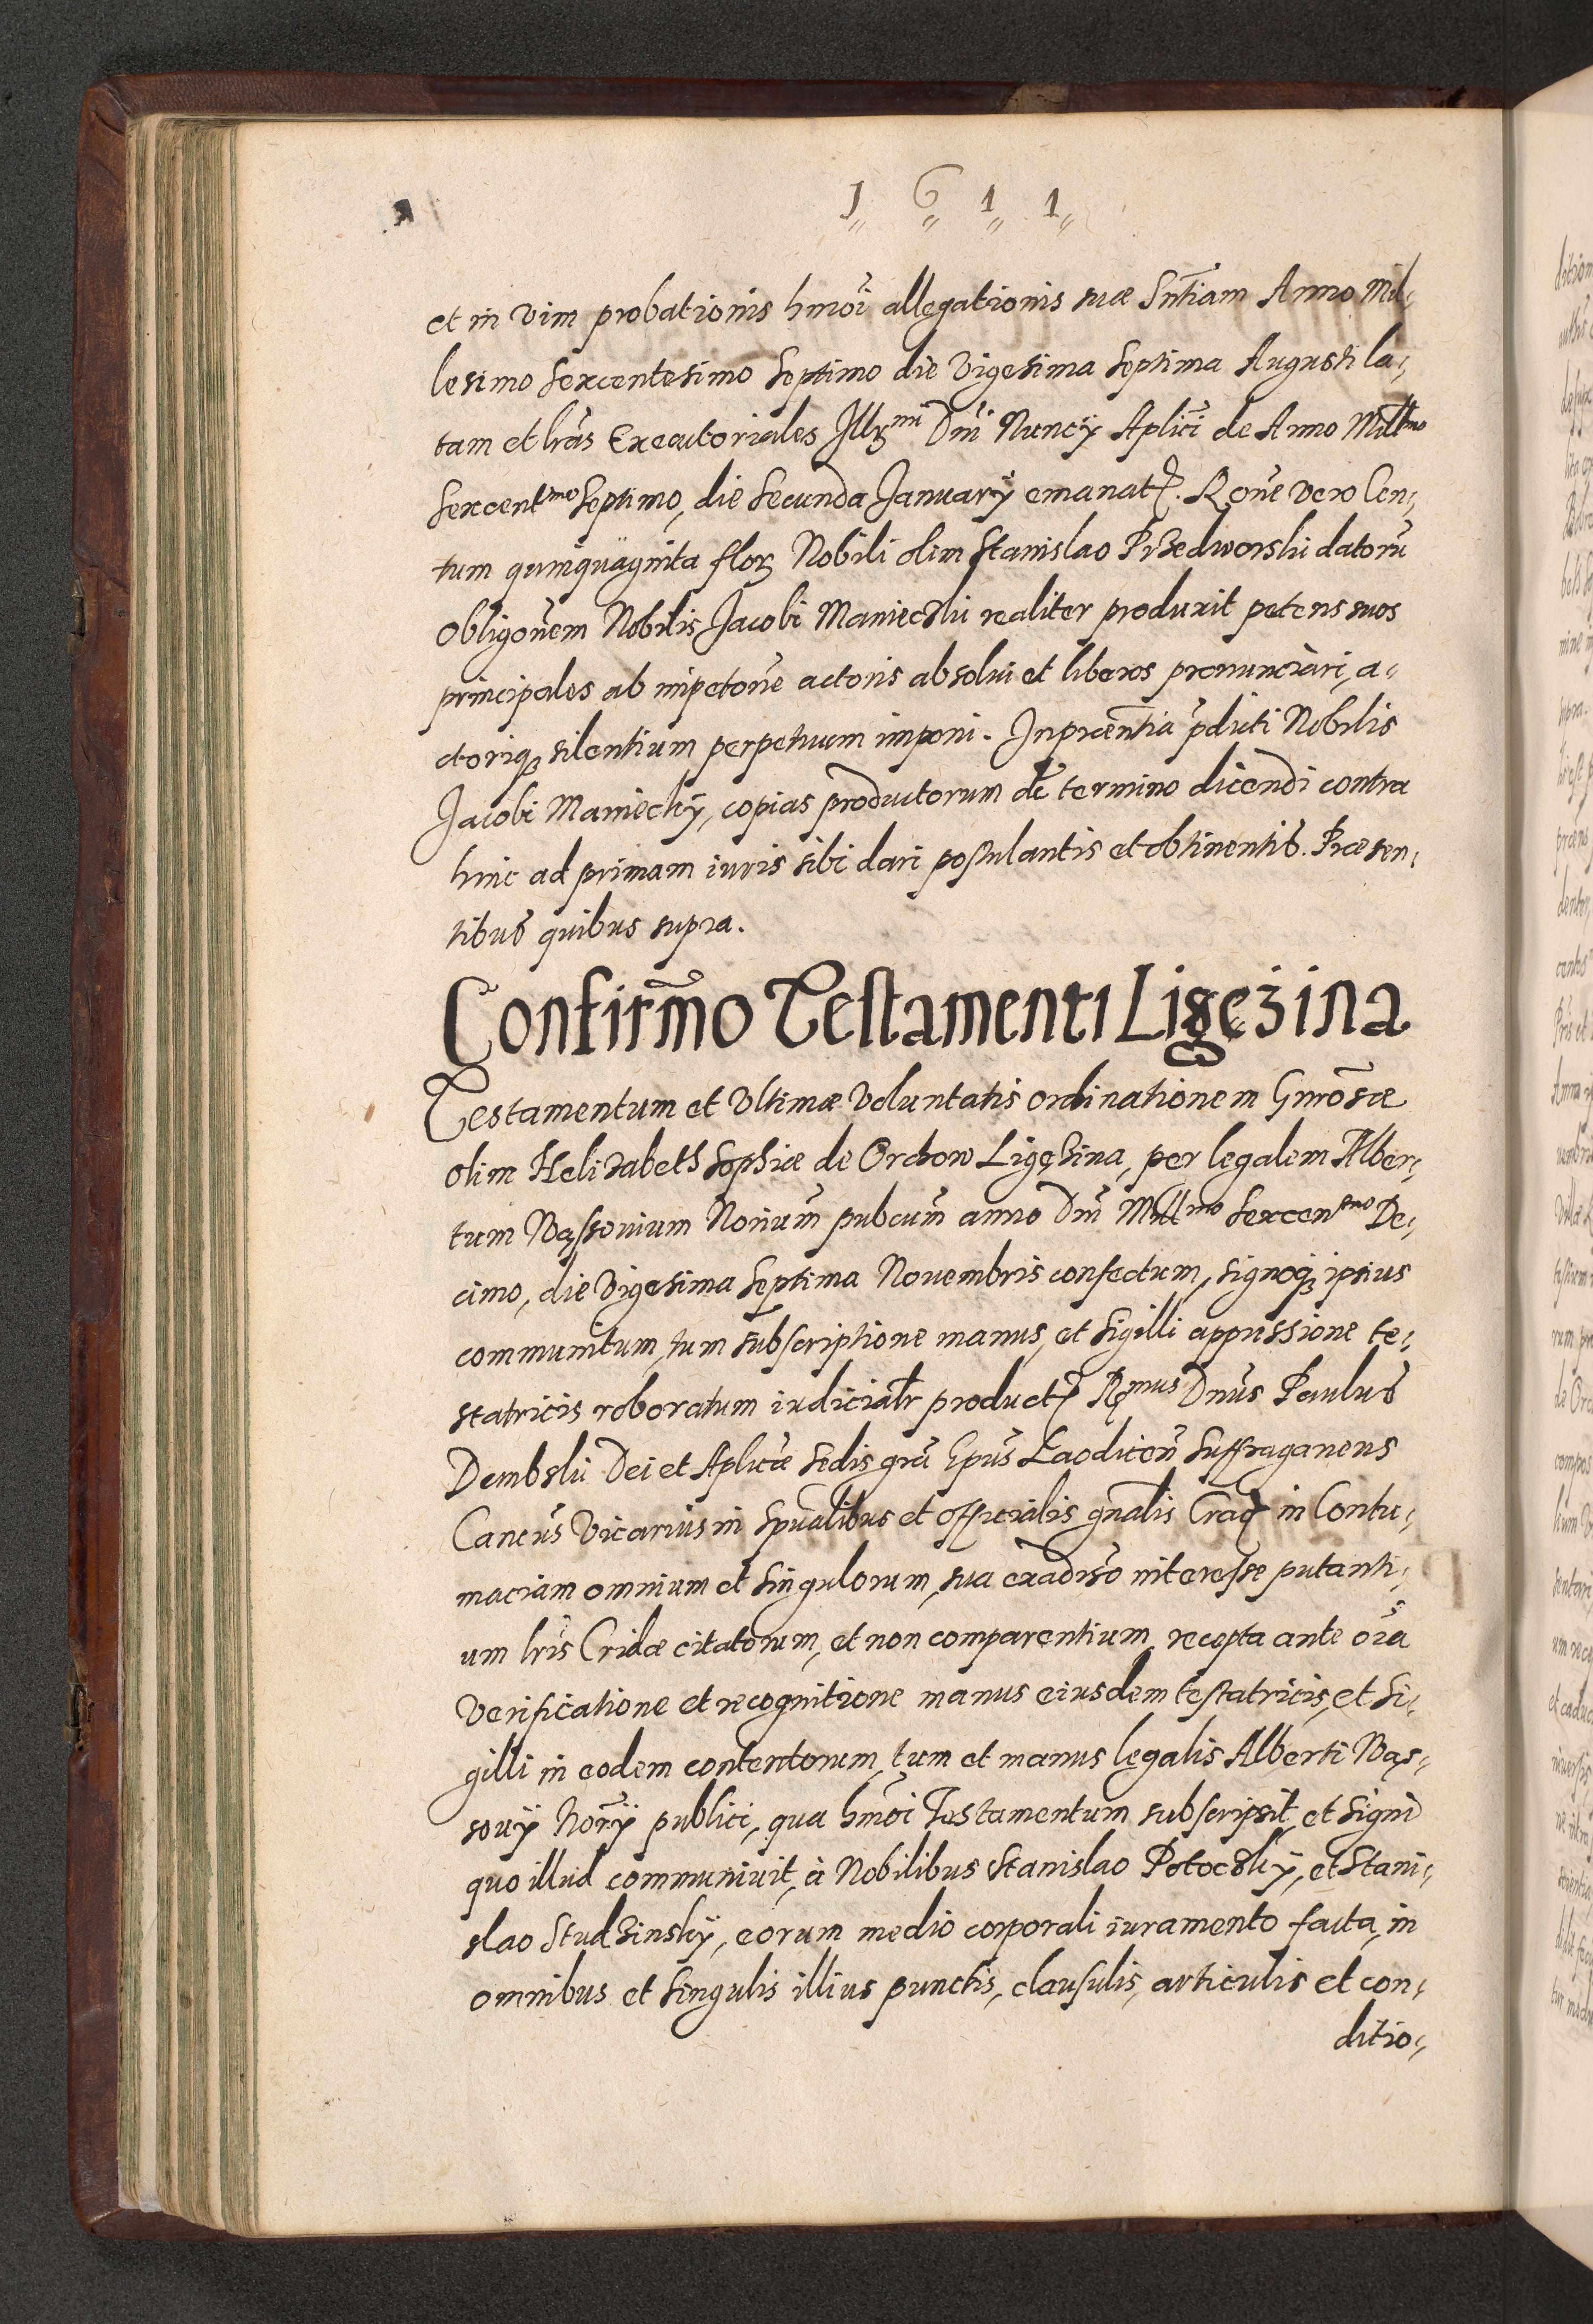 1 6 1 1
et in vim probationis hmōi allegationis suæ Sn̄tiam Anno Mil-
lesimo Sexcentesimo Septimo die Vigesima Septima Augusti la-
tam et lr̄as Executoriales Illꝫmi Dn̄i Nuncÿ Aplīci de Anno Millmo
Sexcentmo Septimo, die Secunda Januarÿ emanat. Rōne vero Cen-
tum quinquaginta florꝫ Nobili olim Stanislao Przedworski datorū
obligōnem Nobilis Jacobi Maniecski realiter produxit petens suos
principales ab impetōne actoris absolui et liberos pronunciari, a-
ctoriqꝫ silentium perpetuum imponi. In præn̄tia p̄dicti Nobilis
Jacobi Manieckÿ, copias productorum de termino dicendi contra
hinc ad primam iuris sibi dari postulantis et obtinentis. Præsen-
tibus quibus supra.
Confirmō Testamenti Ligęzina
Testamentum et Vltimæ Voluntatis ordinationem Gn̄rosæ
olim Helizabeth Sophiæ de Orchow Ligęzina, per legalem Alber-
tum Wąssovium Nōrium pubcūm anno Dn̄i Millmo Sexcenmo De-
cimo, die Vigesima Septima Nouembris confectum, signoqꝫ ipsius
communitum, tum subscriptione manus, et Sigilli appressione te-
statricis roboratum iudicialr̄ product Rꝫmus Dn̄us Paulus
Dembski Dei et Aplicæ Sedis grā Ep̄us Laodiceñ Suffraganeus
Cancūs Vicarius in Spūalibus et officialis gn̄alis Crac in Contu-
maciam omnium et singulorum, sua exadisō interesse putanti-
um lr̄is Cridæ citatorum, et non comparentium, recepta ante oīa
verificatione et recognitione manus eiusdem testatricis, et Si-
gilli in eodem contentorum, tum et manus legalis Alberti Wąs-
souÿ Nōrÿ publici, qua hmōi Testamentum subscripsit, et Signi
quo illud communiuit, à Nobilibus Stanislao Potocskÿ, et Stani-
slao Studzinskÿ, eorum medio corporali iuramento facta, in
omnibus et Singulis illius punctis, clausulis, articulis et con-
ditio-